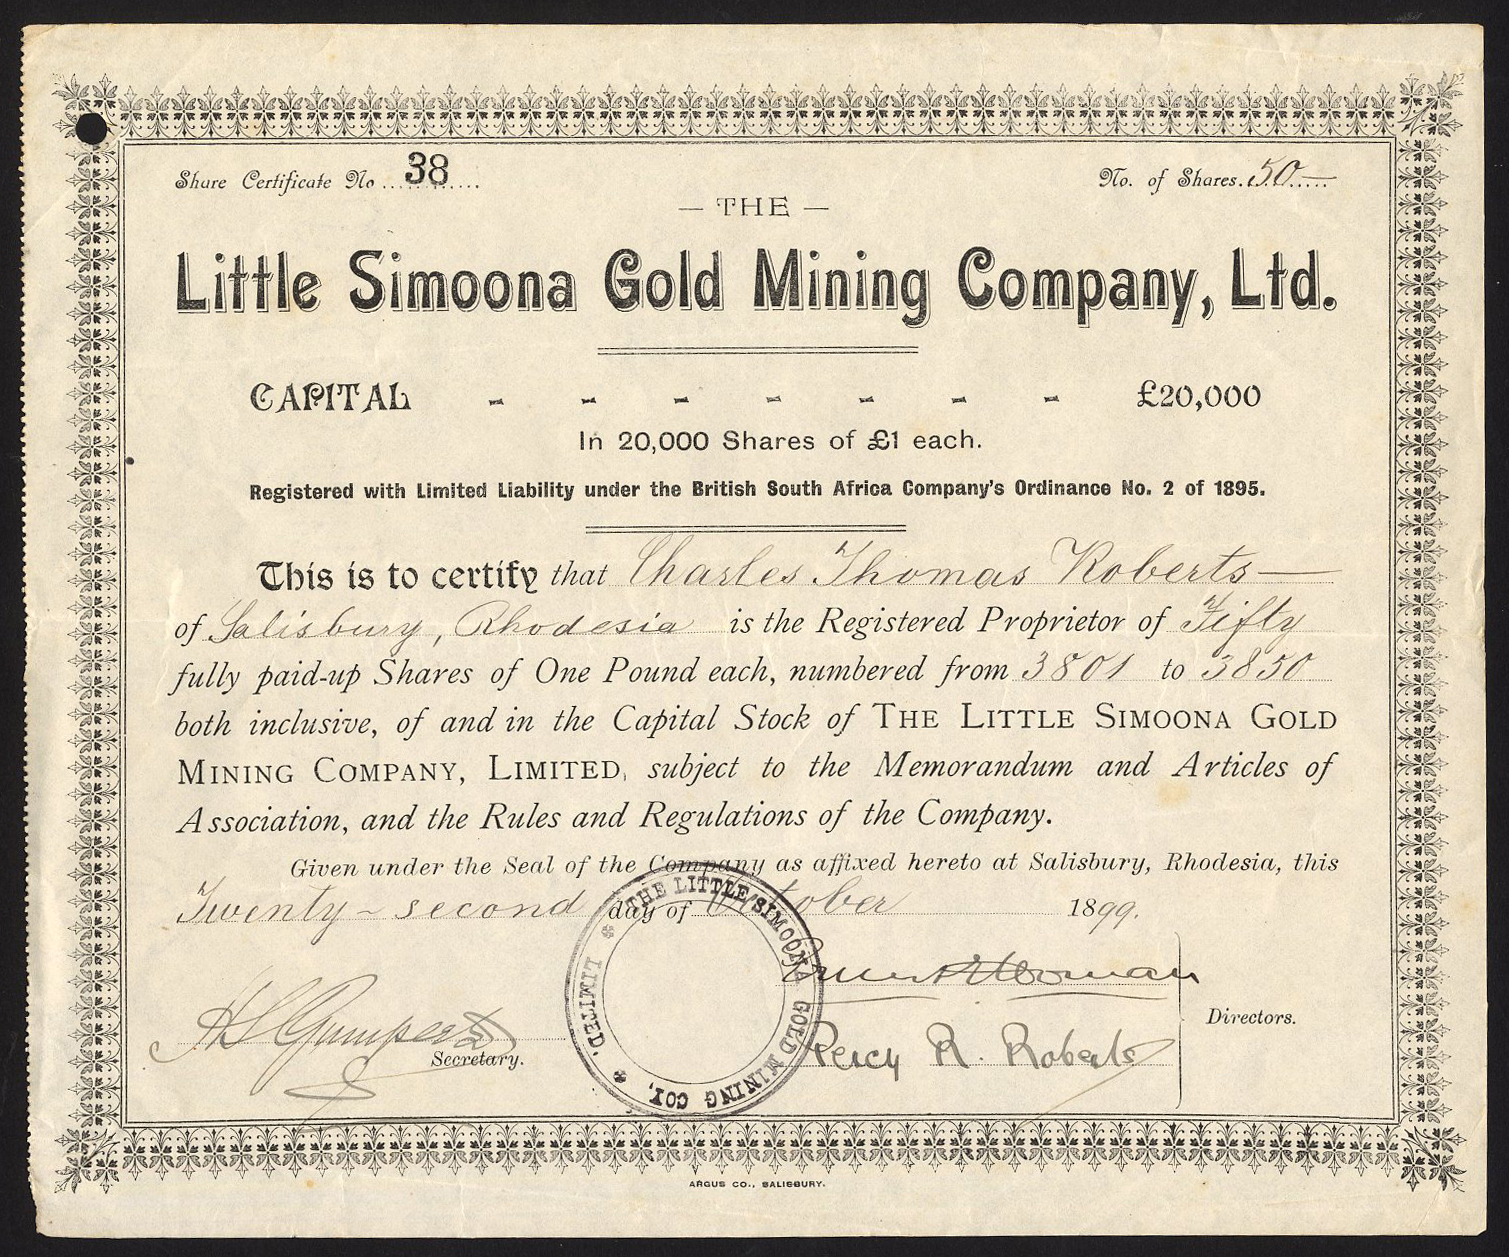 Share Certificate No ... 38 ....
No. of Shares. 50 —
— THE —
Little Simoona Gold Mining Company, Ltd.
CAPITAL - - - - - - - £20,000
In 20,000 Shares of £1 each.
Registered with Limited Liability under the British South Africa Company's Ordinance No. 2 of 1895.
This is to certify that Charles Thomas Roberts —
of Salisbury, Rhodesia is the Registered Proprietor of Fifty
fully paid-up Shares of One Pound each, numbered from 3801 to 3850
both inclusive, of and in the Capital Stock of THE LITTLE SIMOONA GOLD
MINING COMPANY, LIMITED, subject to the Memorandum and Articles of
Association, and the Rules and Regulations of the Company.
Given under the Seal of the Company as affixed hereto at Salisbury, Rhodesia, this
Twenty-second day of October 1899.
THE LITTLE SIMOONA GOLD MINING COY, LIMITED.
Secretary.
Percy R. Roberts
Directors.
ARGUS CO., SALISBURY.